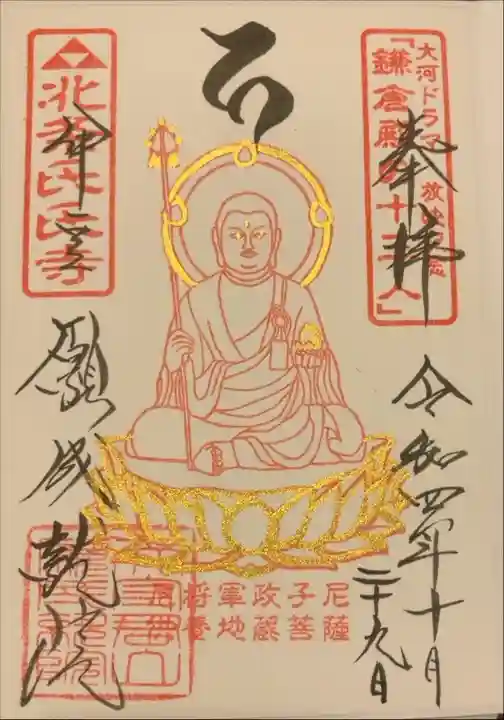 大河ドラマ 放映記念
「鎌倉殿の十三人」
奉拝
令和四年十月
二十九日
北條氏氏寺
願成就院
将軍政子尼
供養地蔵菩薩